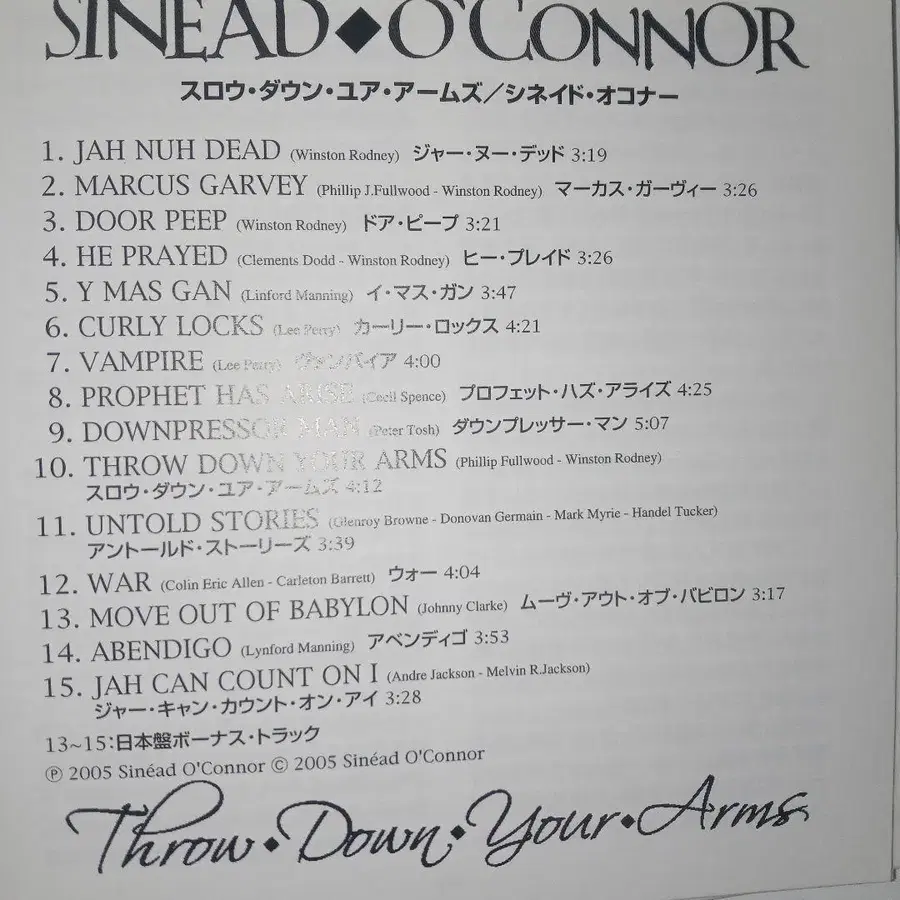 SINÉAD◆O'CONNOR
スロウ・ダウン・ユア・アームズ／シネイド・オコナー
1. JAH NUH DEAD (Winston Rodney) ジャー・ヌー・デッド 3:19
2. MARCUS GARVEY (Phillip J.Fullwood - Winston Rodney) マーカス・ガーヴィー 3:26
3. DOOR PEEP (Winston Rodney) ドア・ピープ 3:21
4. HE PRAYED (Clements Dodd - Winston Rodney) ヒー・プレイド 3:26
5. Y MAS GAN (Linford Manning) イ・マス・ガン 3:47
6. CURLY LOCKS (Lee Perry) カーリー・ロックス 4:21
7. VAMPIRE (Lee Perry) ヴァンパイア 4:00
8. PROPHET HAS ARISE (Cecil Spence) プロフェット・ハズ・アライズ 4:25
9. DOWNPRESSOR MAN (Peter Tosh) ダウンプレッサー・マン 5:07
10. THROW DOWN YOUR ARMS (Phillip Fullwood - Winston Rodney)
スロウ・ダウン・ユア・アームズ 4:12
11. UNTOLD STORIES (Glenroy Browne - Donovan Germain - Mark Myrie - Handel Tucker)
アントールド・ストーリーズ 3:39
12. WAR (Colin Eric Allen - Carleton Barrett) ウォー 4:04
13. MOVE OUT OF BABYLON (Johnny Clarke) ムーヴ・アウト・オブ・バビロン 3:17
14. ABENDIGO (Lynford Manning) アベンディゴ 3:53
15. JAH CAN COUNT ON I (Andre Jackson - Melvin R.Jackson)
ジャー・キャン・カウント・オン・アイ 3:28
13~15:日本盤ボーナス・トラック
Ⓟ 2005 Sinéad O'Connor © 2005 Sinéad O'Connor
Throw◆Down◆Your◆Arms